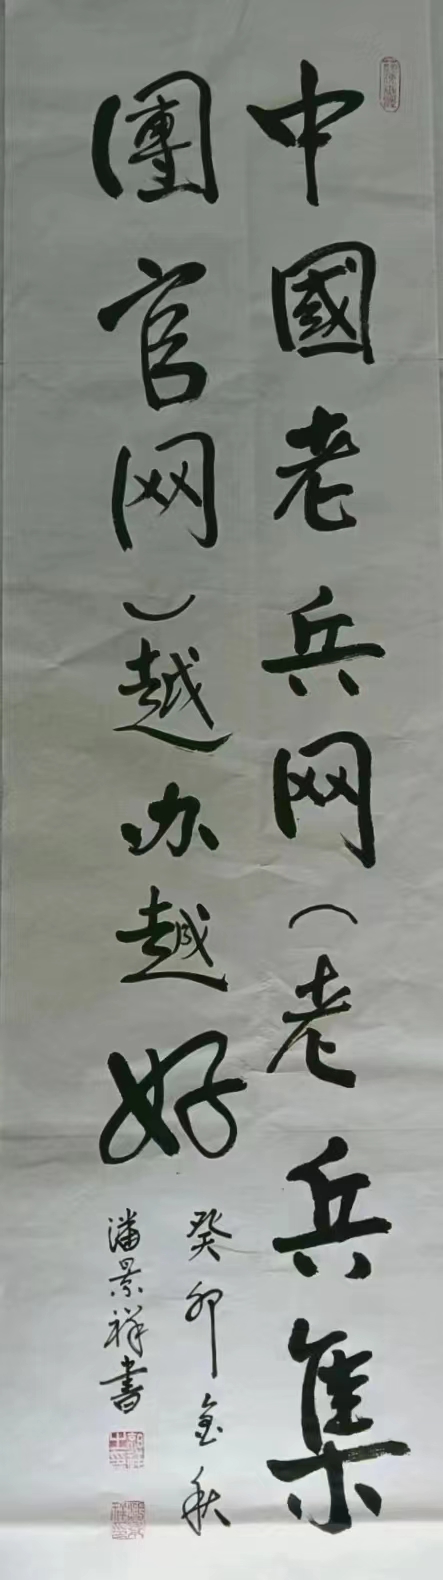 中國老兵网（老兵集
團官网）越办越好
癸卯金秋
潘景祥書